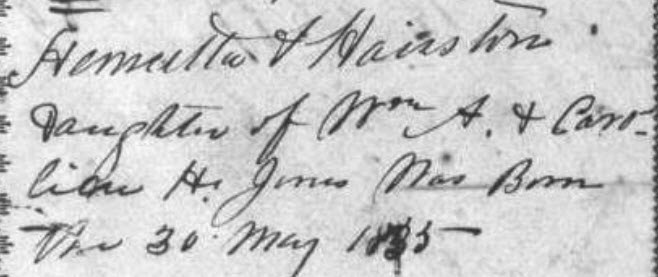 Henrietta & Hairston
Daughter of Wm A. & Caro-
lien H. Jones Was Born
the 30 May 1835